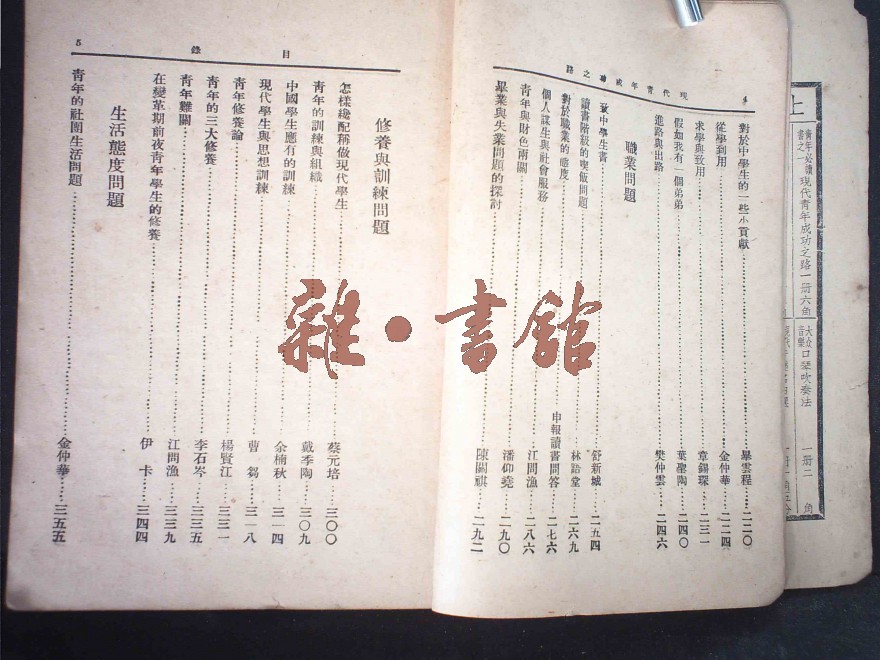 現代青年成功之路
4
對於中學生的一些小貢獻 畢雲程 二二〇
從學到用 金仲華 二二四
求學與致用 章錫琛 二三一
假如我有一個弟弟 葉聖陶 二四〇
進路與出路 樊仲雲 二四六
職業問題
致中學生書 舒新城 二五四
讀書階級的喫飯問題 林語堂 二六九
對於職業的態度 申報讀書問答 二七六
個人謀生與社會服務 江問漁 二八六
青年與財色兩關 潘仰堯 二九〇
畢業與失業問題的探討 陳關祺 二九二
目錄
5
修養與訓練問題
怎樣纔配稱做現代學生 蔡元培 三〇〇
青年的訓練與組織 戴季陶 三〇九
中國學生應有的訓練 余楠秋 三一四
現代學生與思想訓練 曹芻 三一八
青年修養論 楊賢江 三三一
青年的三大修養 李石岑 三三五
青年難關 江問漁 三三九
在變革期前夜青年學生的修養 伊卡 三四四
生活態度問題
青年的社團生活問題 金仲華 三五五
上
青年必讀書之一 現代青年成功之路 一册六角
大衆音樂 口琴吹奏法 一册二角
雜·書館